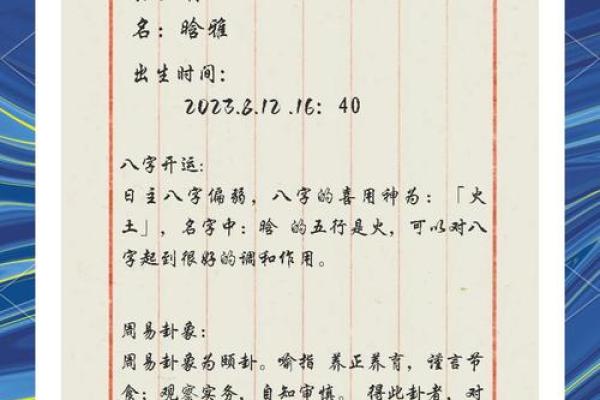 名：晗雅
出生时间：
2023.8.12 .16：40
八字开运：
日主八字偏弱，八字的喜用神为：「火
土」，名字中：晗 的五行是火，可以对八
字起到很好的调和作用。
周易卦象：
周易卦象为颐卦。喻指 养正养育，谨言节
食；观察实务，自知审慎。 得此卦者，对